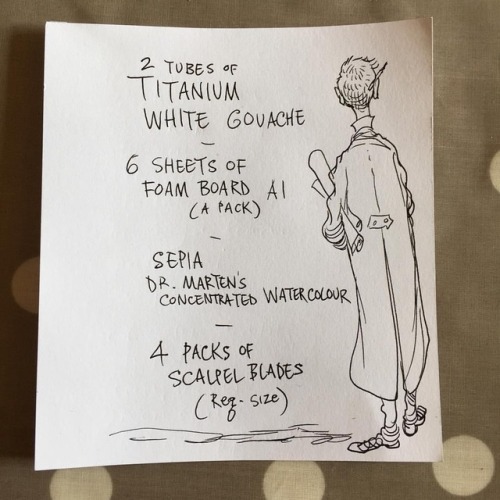 2 TUBES OF
TITANIUM
WHITE GOUACHE
—
6 SHEETS OF
FOAM BOARD A1
(A PACK)
-
SEPIA
DR. MARTEN'S
CONCENTRATED WATERCOLOUR
—
4 PACKS OF
SCALPEL BLADES
(Reg - SIZE)